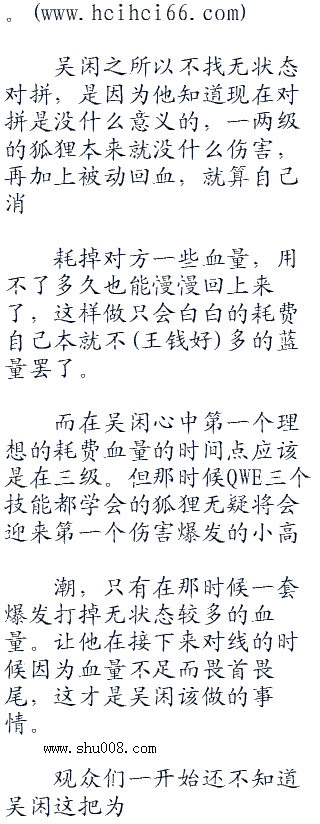 。(www.hcihci66.com)
吴闲之所以不找无状态
对拼，是因为他知道现在对
拼是没什么意义的，一两级
的狐狸本来就没什么伤害，
再加上被动回血，就算自己
消
耗掉对方一些血量，用
不了多久也能慢慢回上来
了，这样做只会白白的耗费
自己本就不(王钱好)多的蓝
量罢了。
而在吴闲心中第一个理
想的耗费血量的时间点应该
是在三级。但那时候QWE三个
技能都学会的狐狸无疑将会
迎来第一个伤害爆发的小高
潮，只有在那时候一套
爆发打掉无状态较多的血
量。让他在接下来对线的时
候因为血量不足而畏首畏
尾，这才是吴闲该做的事
情。
www.shu008.com
观众们一开始还不知道
吴闲这把为